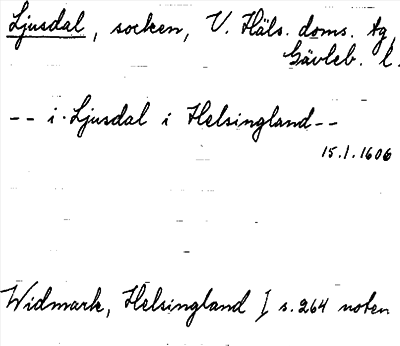 Ljusdal, socken, V. Häls. doms. tg,
Gävleb. l.
-- i Ljusdal i Helsingland --
15.1.1606
Widmark, Helsingland I s. 264 noten